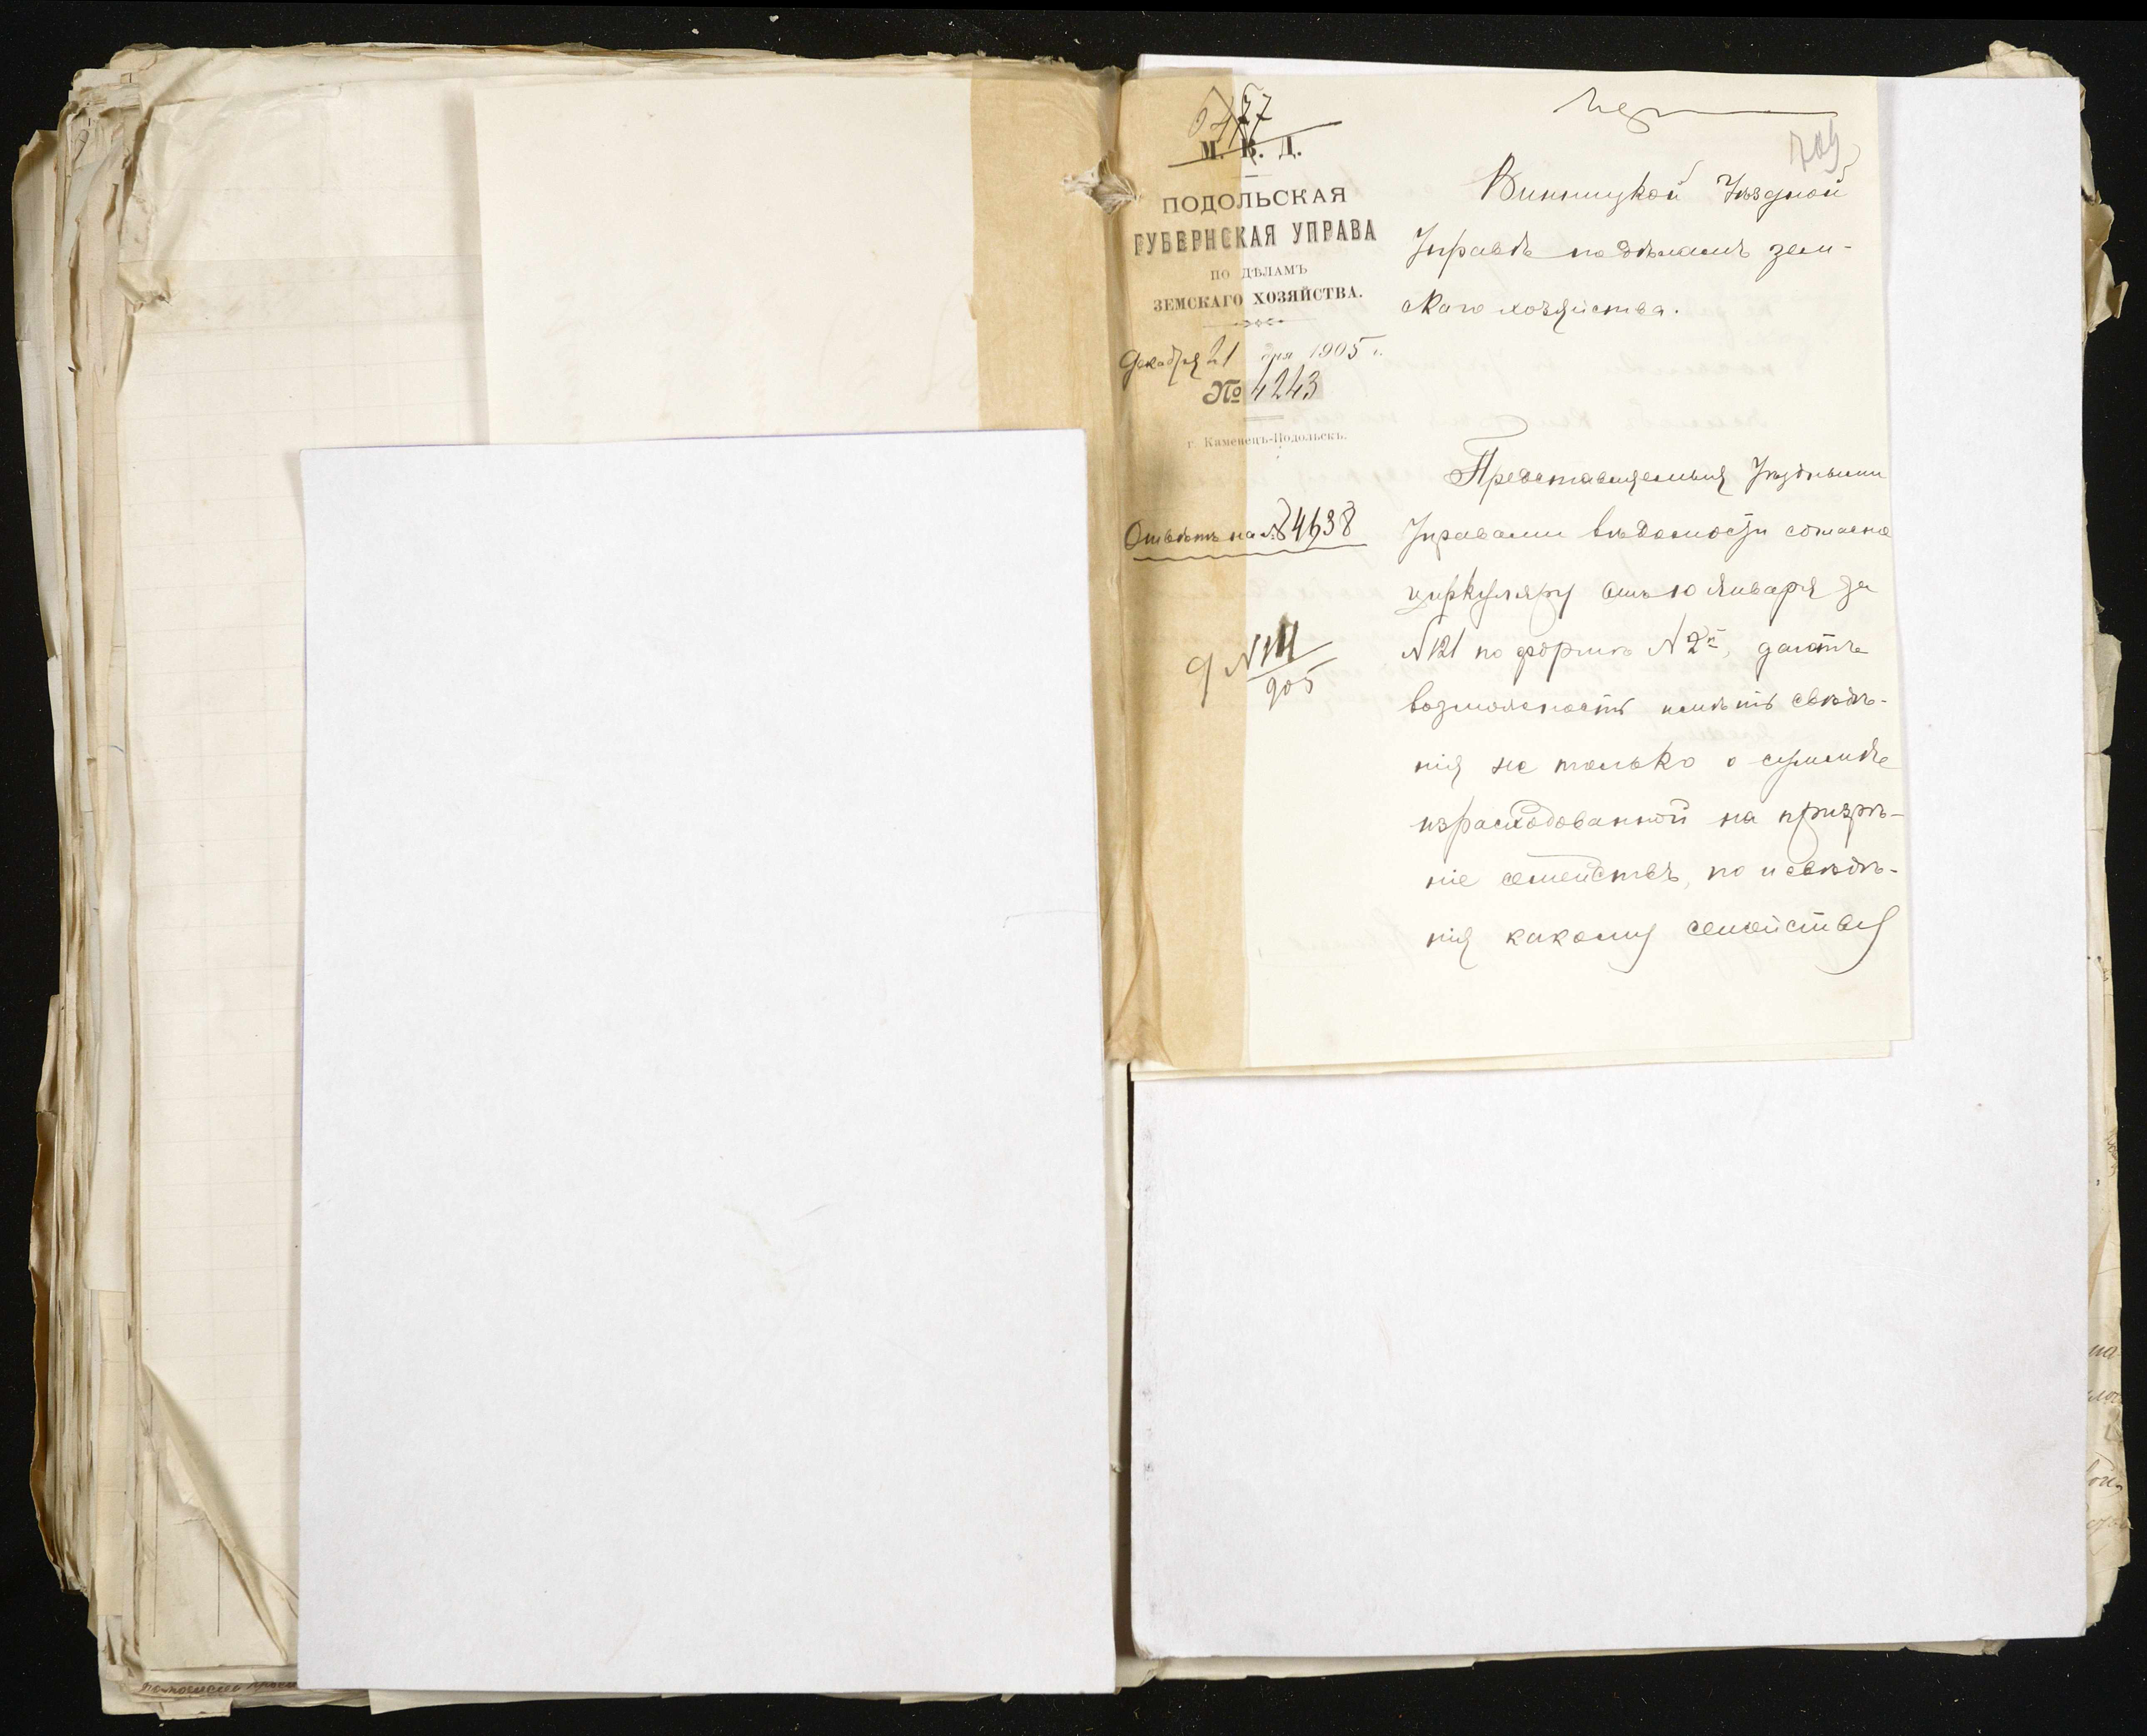 М. В. Д.
ПОДОЛЬСКАЯ
ГУБЕРНСКАЯ УПРАВА
ПО ДѢЛАМЪ
ЗЕМСКАГО ХОЗЯЙСТВА.
Декабря 21 дня 1905 г.
№ 4243
г. Каменецъ-Подольскъ.
Отвѣтъ на № 4638
709
Винницкой Уѣздной
Управѣ по дѣламъ зем-
скаго хозяйства.
Представляемыя Уѣздными
Управами вѣдомости согласно
циркуляру отъ 10 Января за
№ 121 по формѣ № 2й, даютъ
возможность имѣть свѣдѣ-
нія не только о суммѣ
израсходованной на призрѣ-
ніе семействъ, но и свѣдѣ-
нія какому семейству